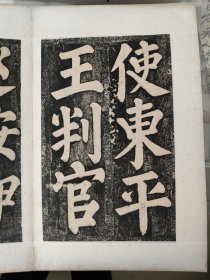 使東平
王判官